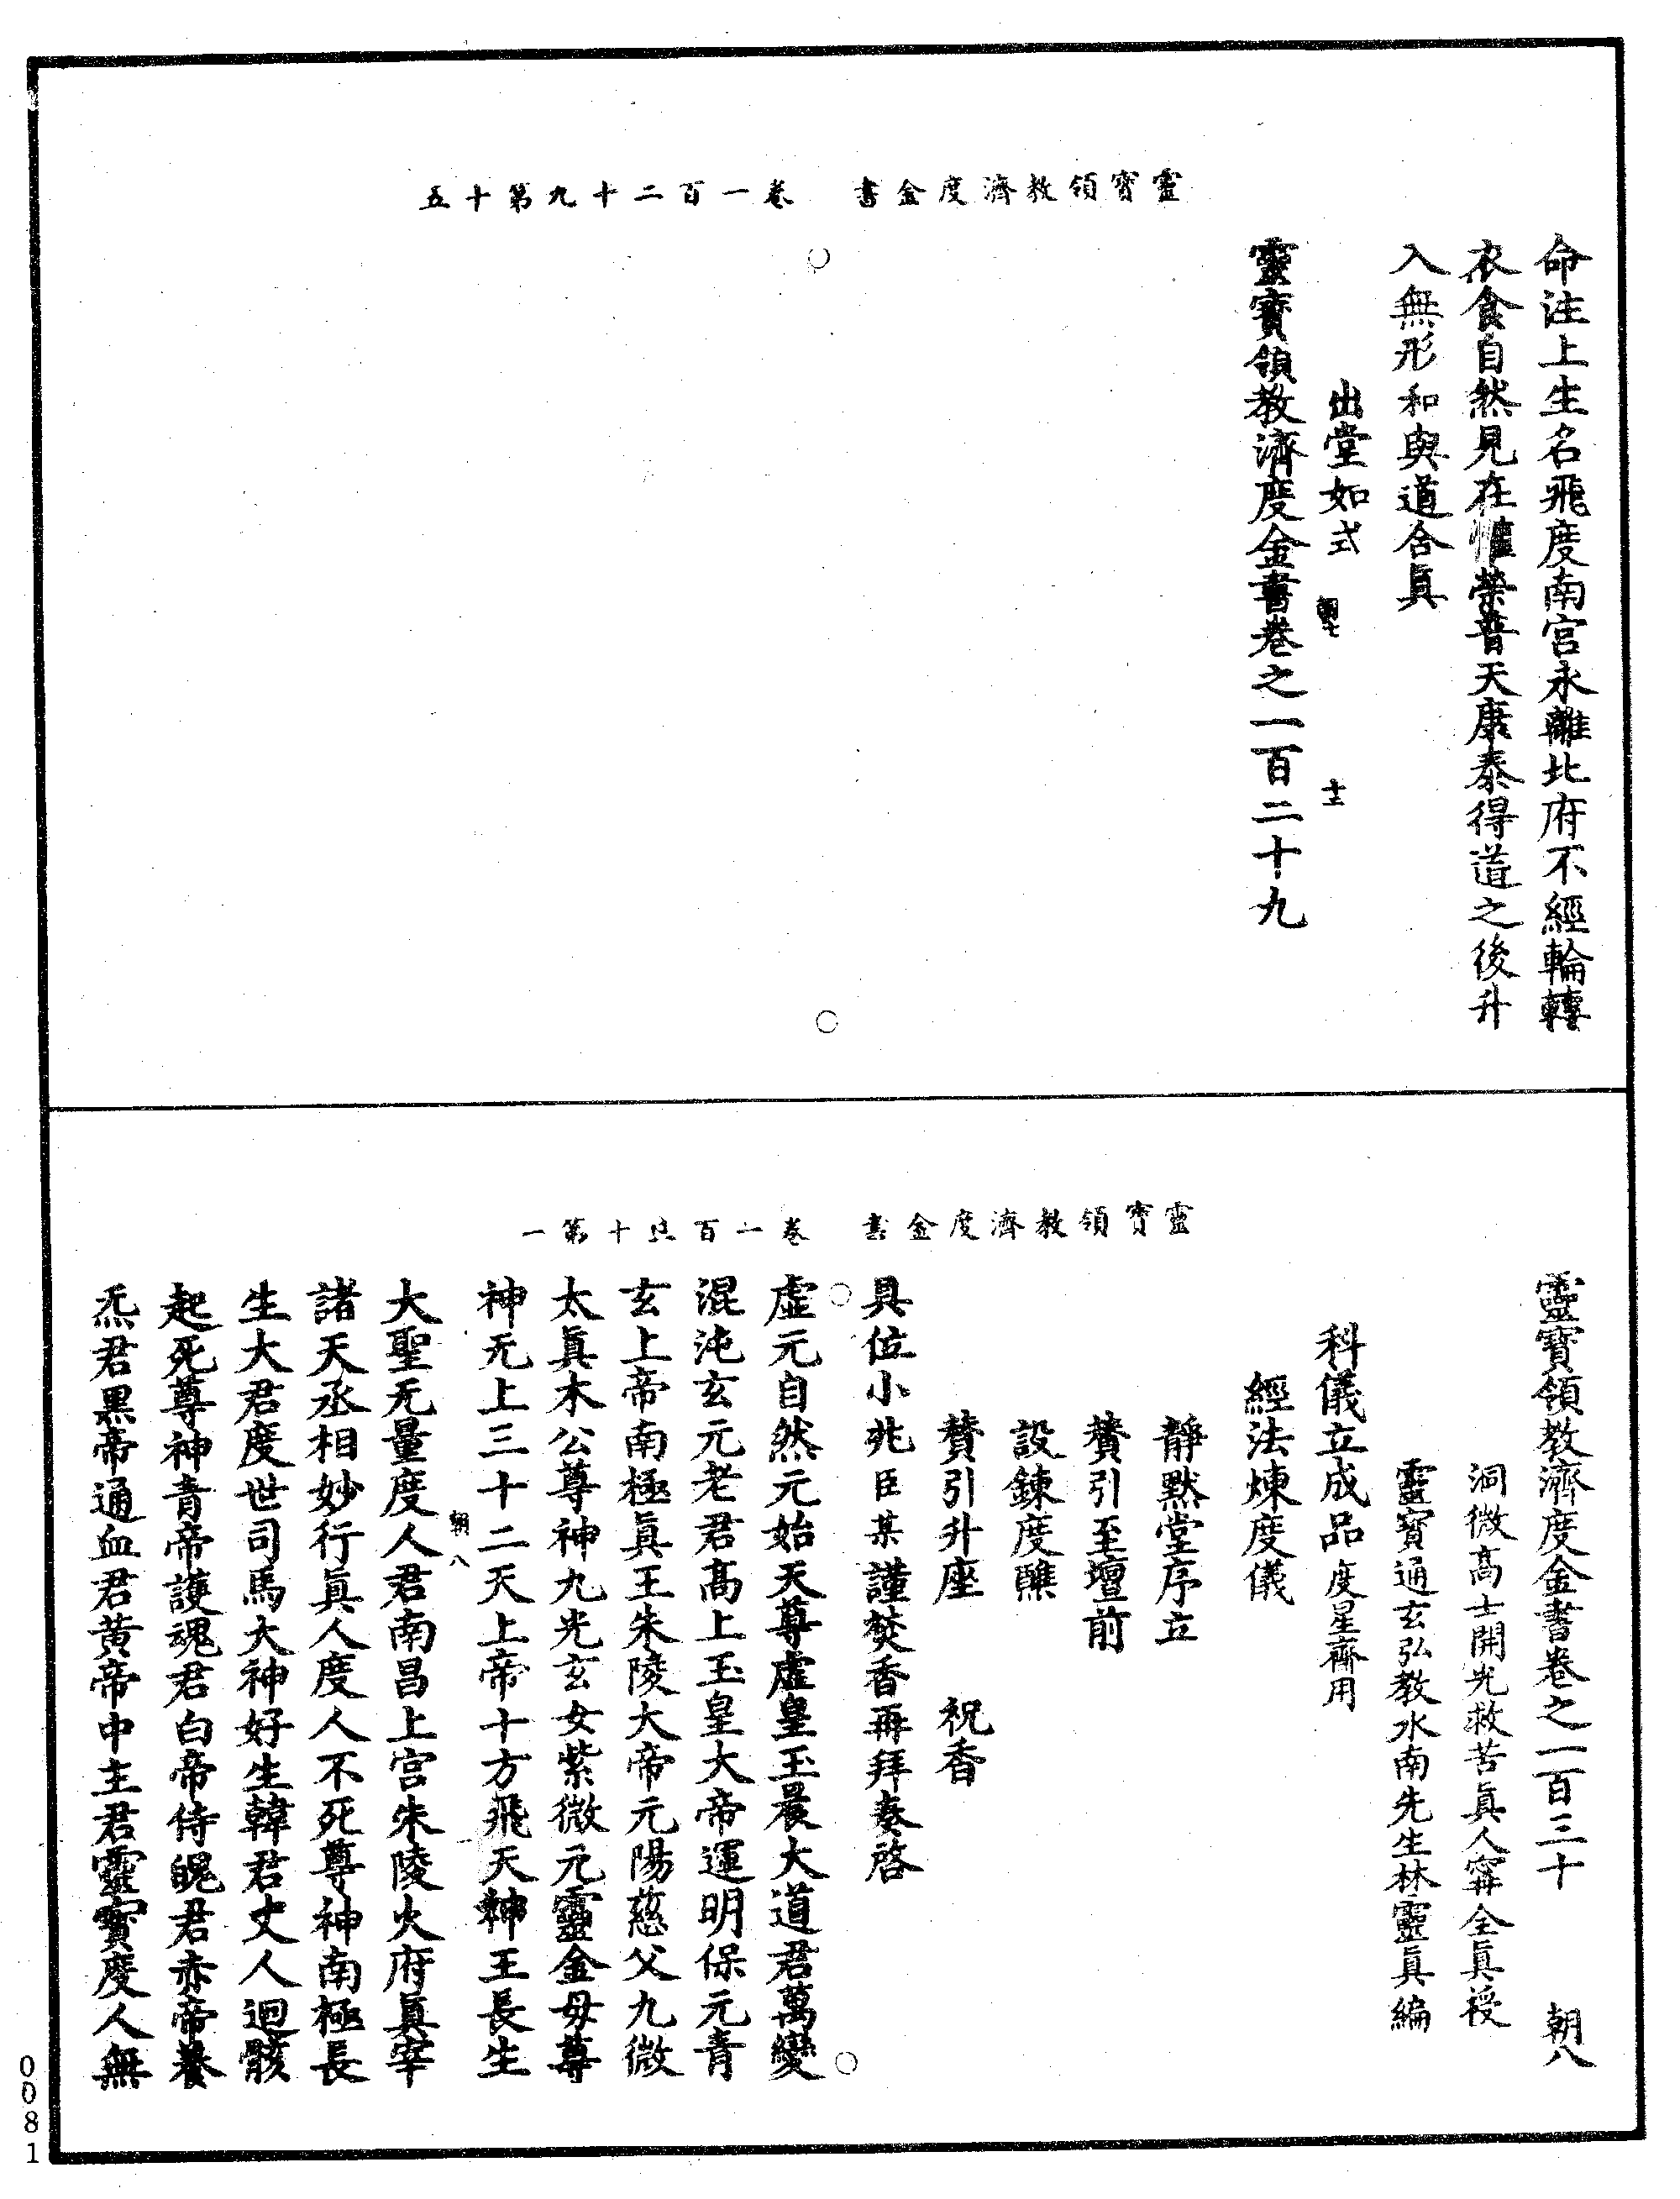 靈寶領教濟度金書　卷一百二十九第十五
命注上生名飛度南宮永離北府不經輪轉
衣食自然見在懽榮普天康泰得道之後升
入無形和與道合眞
出堂如式　朝七　十三
靈寶領教濟度金書卷之一百二十九
靈寶領教濟度金書　卷一百三十第一
靈寶領教濟度金書卷之一百三十　朝八
洞微高士開光救苦眞人甯全眞授
靈寶通玄弘教水南先生林靈眞編
科儀立成品度星齋用
經法煉度儀
靜默堂序立
贊引至壇前
設鍊度醮
贊引升座　祝香
具位小兆臣某謹焚香再拜奏啓
虛元自然元始天尊虛皇玉晨大道君萬變
混沌玄元老君高上玉皇大帝運明保元青
玄上帝南極眞王朱陵大帝元陽慈父九微
太眞木公尊神九光玄女紫微元靈金母尊
神无上三十二天上帝十方飛天神王長生
朝八
大聖无量度人君南昌上宮朱陵火府眞宰
諸天丞相妙行眞人度人不死尊神南極長
生大君度世司馬大神好生韓君丈人迴骸
起死尊神青帝護魂君白帝侍魄君赤帝養
炁君黑帝通血君黃帝中主君靈寶度人無
0081